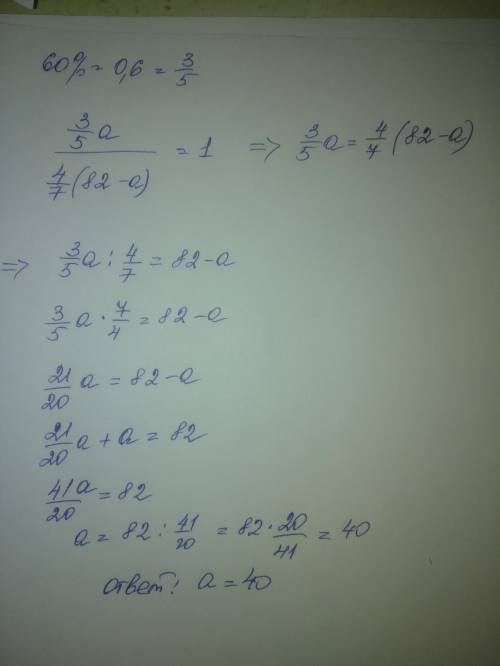 60% = 0,6 = 3/5
(3/5 a) / (4/7 (82 - a)) = 1 => 3/5 a = 4/7 (82 - a)
=> 3/5 a : 4/7 = 82 - a
3/5 a · 7/4 = 82 - a
21/20 a = 82 - a
21/20 a + a = 82
41a/20 = 82
a = 82 : 41/20 = 82 · 20/41 = 40
ответ: a = 40